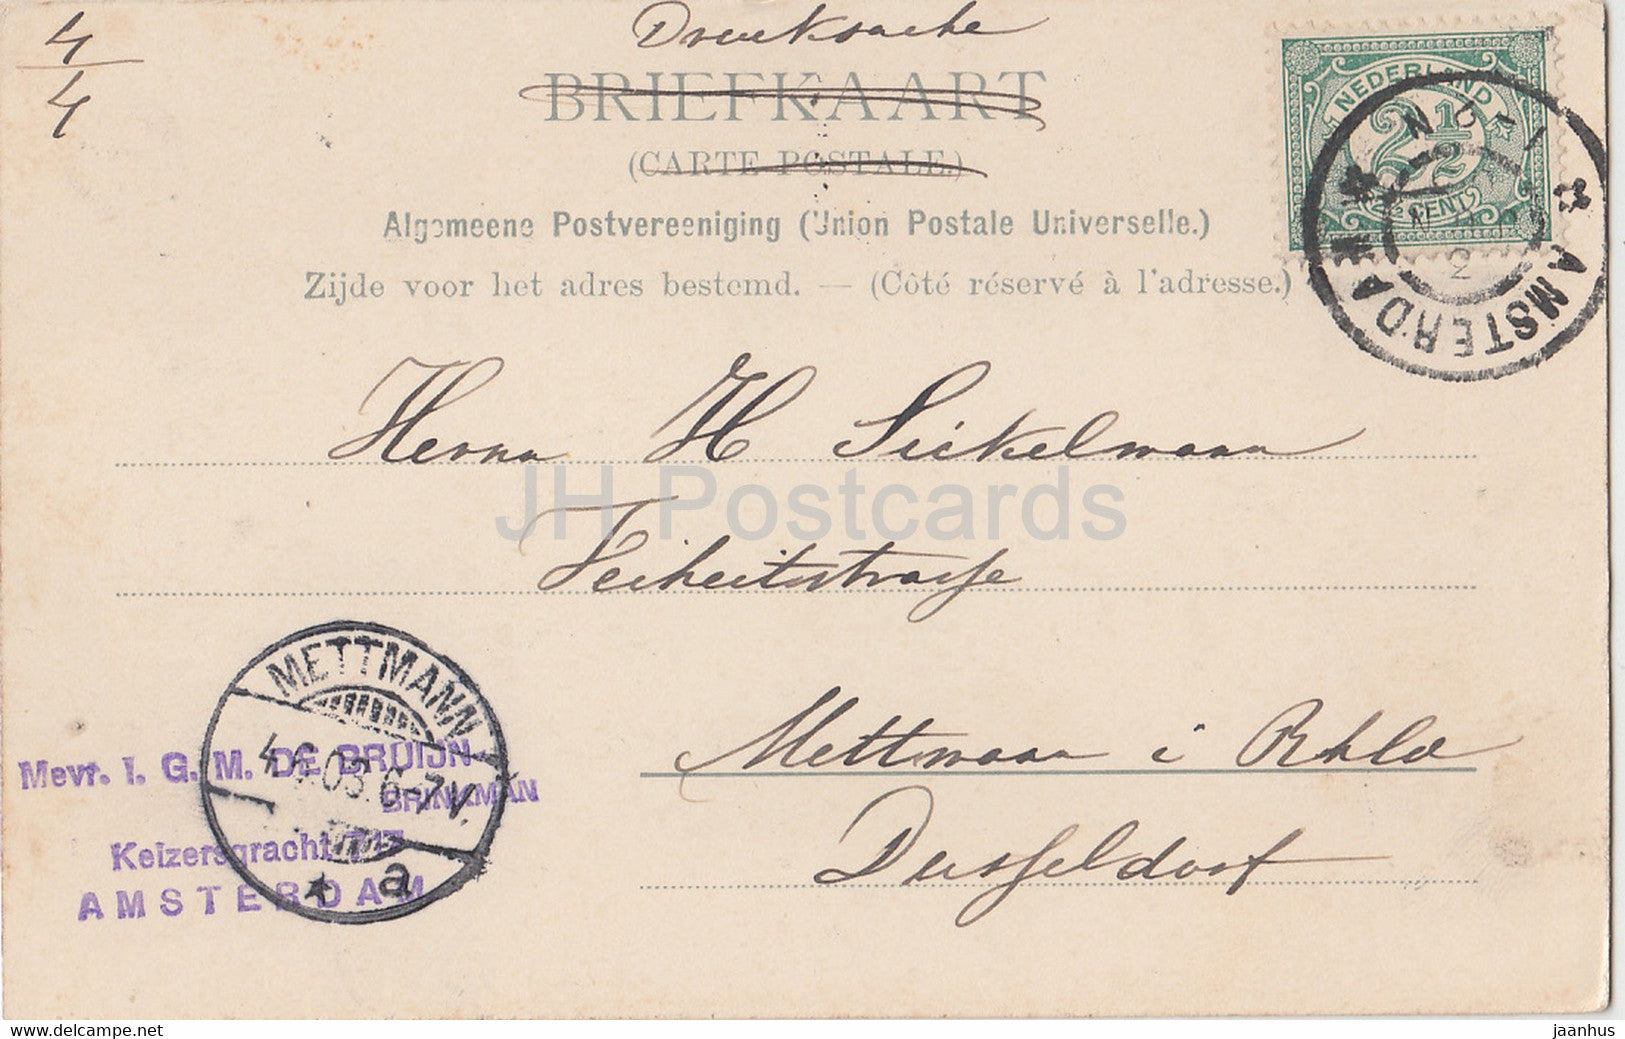 4/4
Drucksache
BRIEFKAART
(CARTE POSTALE.)
Algemeene Postvereeniging (Union Postale Universelle.)
Zijde voor het adres bestemd. — (Côté réservé à l'adresse.)
NEDERLAND
2½
CENT
AMSTERDAM
Herrn H Sickelmann
JH Postcards
Feiheitsstrasse
Mettmann i Rhld
Dusseldorf
METTMANN
03.6-7V.
a
Mevr. I. G. M. DE BRUIJN
BRINKMAN
Keizersgracht 717
AMSTERDAM
www.delcampe.net
jaanhus